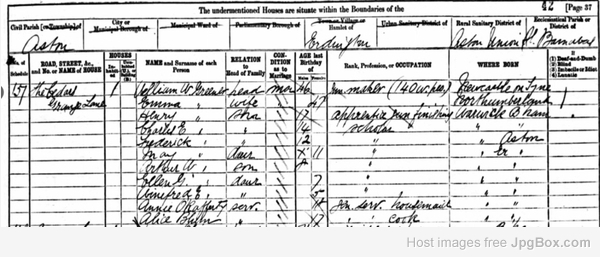 The undermentioned Houses are situate within the Boundaries of the
42 [Page 37
Civil Parish [or Township] of
City or
Municipal Borough of
Municipal Ward of
Parliamentary Borough of
Town or Village or
Hamlet of
Urban Sanitary District of
Rural Sanitary District of
Ecclesiastical Parish or
District of
Aston
Erdington
Aston Union
St Barnabas
No. of
Schedule
ROAD, STREET, &c.,
and No. or NAME of HOUSE
HOUSES
NAME and Surname of each
Person
RELATION
to Head of Family
CON-
DITION
as to
Marriage
AGE last
Birthday
of
Rank, Profession, or OCCUPATION
WHERE BORN
If
(1) Deaf-and-Dumb
(2) Blind
(3) Imbecile or Idiot
(4) Lunatic
157 The Cedars 1 William W. Greener head mar 46 Gun maker (140 w. pers) Newcastle on Tyne
Grange Lane Emma " wife " 47 Northumberland
Henry " son 17 apprentice gun finishing Warwick B'ham
Charles E " " 14 scholar " "
Frederick " " 12 " " Aston
May " daur 11 "
Arthur W " son "
Ellen G " daur 7 "
Winifred E " " 5 "
Annie serv. 18 Gen. serv. housemaid
Alice " 17 " cook
Host images free JpgBox.com